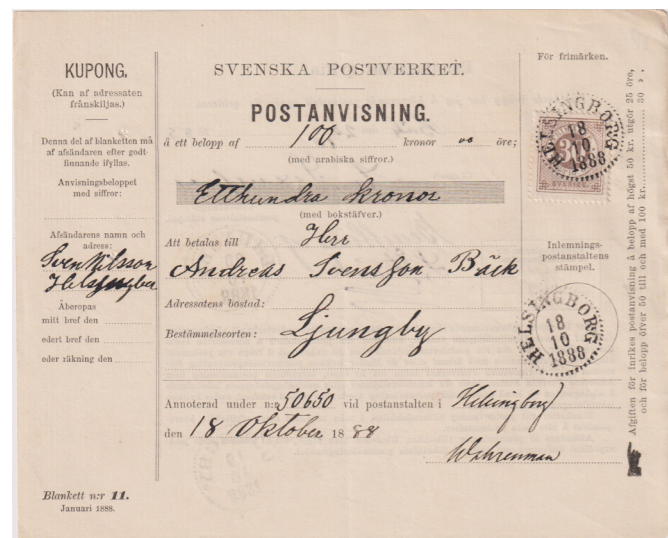 KUPONG.
(Kan af adressaten
frånskiljas.)
Denna del af blanketten må
af afsändaren efter godt-
finnande ifyllas.
Anvisningsbeloppet
med siffror:
Afsändarens namn och
adress:
Sven Nilsson
Helsingborg
Åberopas
mitt bref den
edert bref den
eder räkning den
Blankett n:r 11.
Januari 1888.
SVENSKA POSTVERKET.
POSTANVISNING.
å ett belopp af 100 kronor öre;
(med arabiska siffror.)
Etthundra kronor
(med bokstäfver.)
Att betalas till Herr
Andreas Svensson Bäck
Adressatens bostad:
Bestämmelseorten: Ljungby
Annoterad under n:r 50650 vid postanstalten i Helsingborg
den 18 Oktober 1888
Wahrenman
För frimärken.
HELSINGBORG
18
10
1888
SVERIGE
Inlemnings-
postanstaltens
stämpel.
HELSINGBORG
18
10
1888
Afgiften för inrikes postanvisning å belopp af högst 50 kr. utgör 25 öre,
och för belopp öfver 50 till och med 100 kr. 30 ».